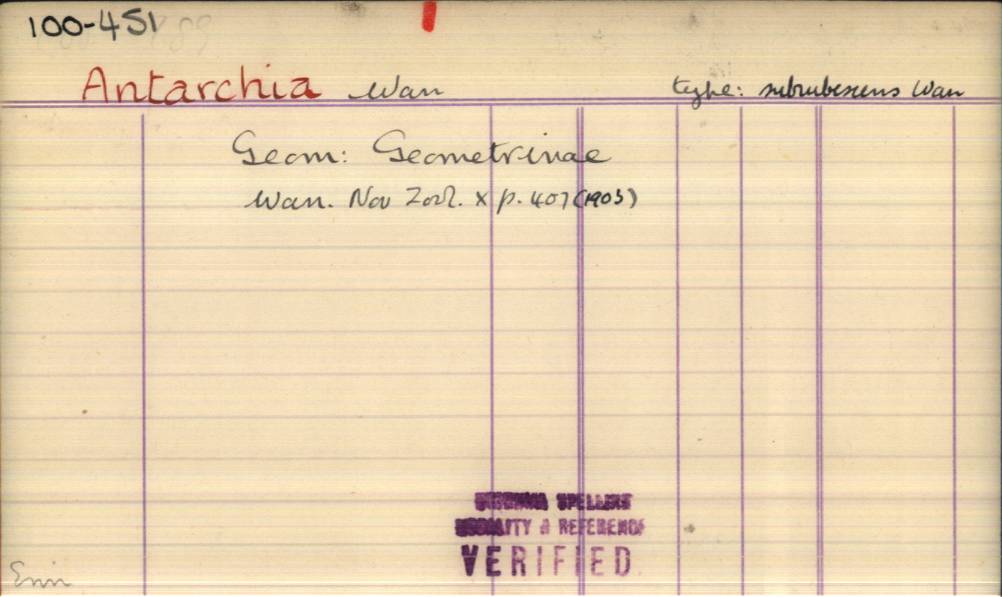 100-451
Antarchia Warr type: subrubescens Warr
Geom: Geometrinae
Warr. Nov Zool. x p. 407 (1903)
SPELLING
LOCALITY & REFERENCE
VERIFIED